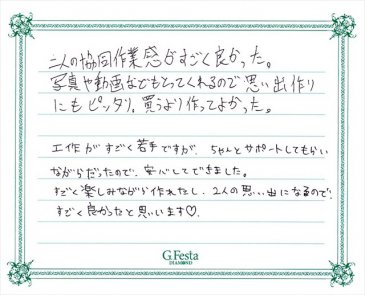 二人の協同作業感がすごく良かった。
写真や動画などもとってくれるので思い出作り
にもピッタリ。買うより作ってよかった。
工作がすごく苦手ですが、ちゃんとサポートしてもらい
ながらだったので、安心してできました。
すごく楽しみながら作れたし、2人の思い出になるので、
すごく良かったと思います♡。
G.Festa
DIAMOND